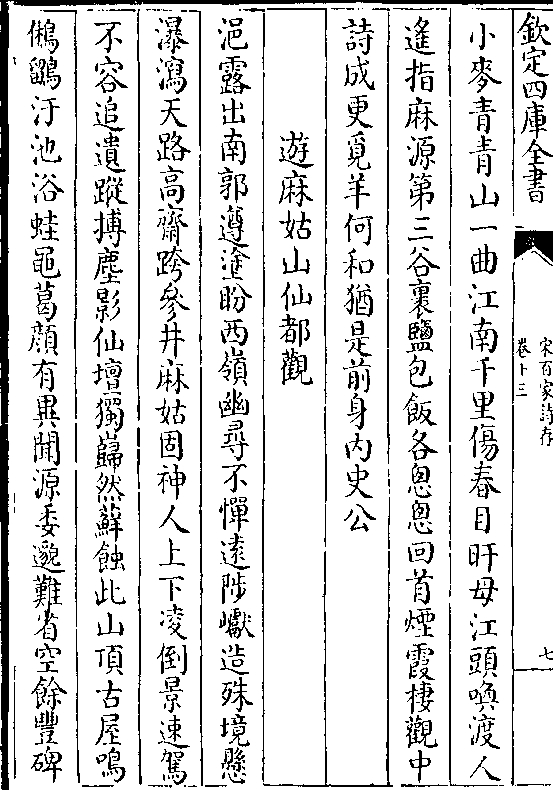 欽定四庫全書
宋百家詩存
卷十三
七
小麥青青山一曲江南千里傷春目旰母江頭喚渡人
遙指麻源第三谷裹鹽包飯各悤悤回首煙霞棲觀中
詩成更覓羊何和猶是前身内史公
遊麻姑山仙都觀
浥露出南郭遵塗盼西嶺幽尋不憚遠陟巘造殊境懸
瀑瀉天路高齋跨參井麻姑固神人上下凌倒景速駕
不容追遺蹤摶塵影仙壇獨巋然蘚蝕此山頂古屋鳴
鵂鶹汙池浴蛙黽葛顔有異聞源委邈難省空餘豐碑